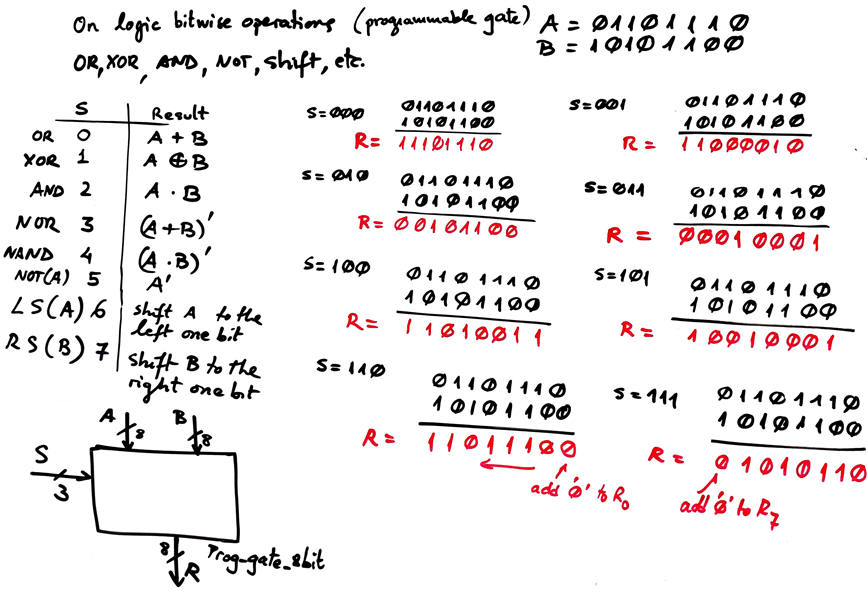 On logic bitwise operations (programmable gate) A = 01101110
B = 10101100
OR, XOR, AND, NOT, shift, etc.
S Result
OR 0 A + B
XOR 1 A ⊕ B
AND 2 A · B
NOR 3 (A+B)'
NAND 4 (A · B)'
NOT(A) 5 A'
LS(A) 6 shift A to the
left one bit
RS(B) 7 shift B to the
right one bit
S=000 01101110
10101100
R= 11101110
S=001 01101110
10101100
R = 11000010
S=010 01101110
10101100
R= 00101100
S=011 01101110
10101100
R = 00010001
S=100 01101110
10101100
R= 11010011
S=101 01101110
10101100
R = 10010001
S=110 01101110
10101100
R= 11011100
add '0' to R0
S=111 01101110
10101100
R = 01010110
add '0' to R7
A B
8 8
S
3
8
R
Prog-gate_8bit